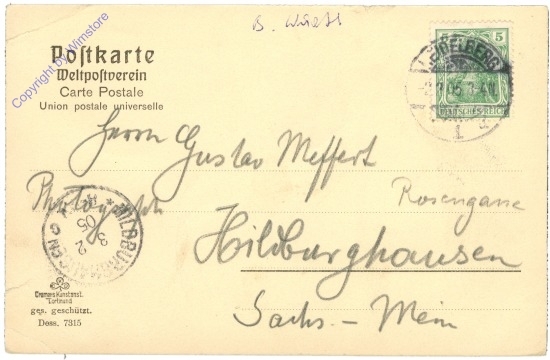 Postkarte
Weltpostverein
Carte Postale
Union postale universelle
Copyright by Wimstore
5
HEIDELBERG
05
DEUTSCHES REICH
1
Herrn Gustav Meffert
Photograph
Rosengasse
Hildburghausen
Sachs. - Mein
HILDBURGHAUSEN
3 2 05
Cramers Kunstanst.
Dortmund
ges. geschützt.
Dess. 7315